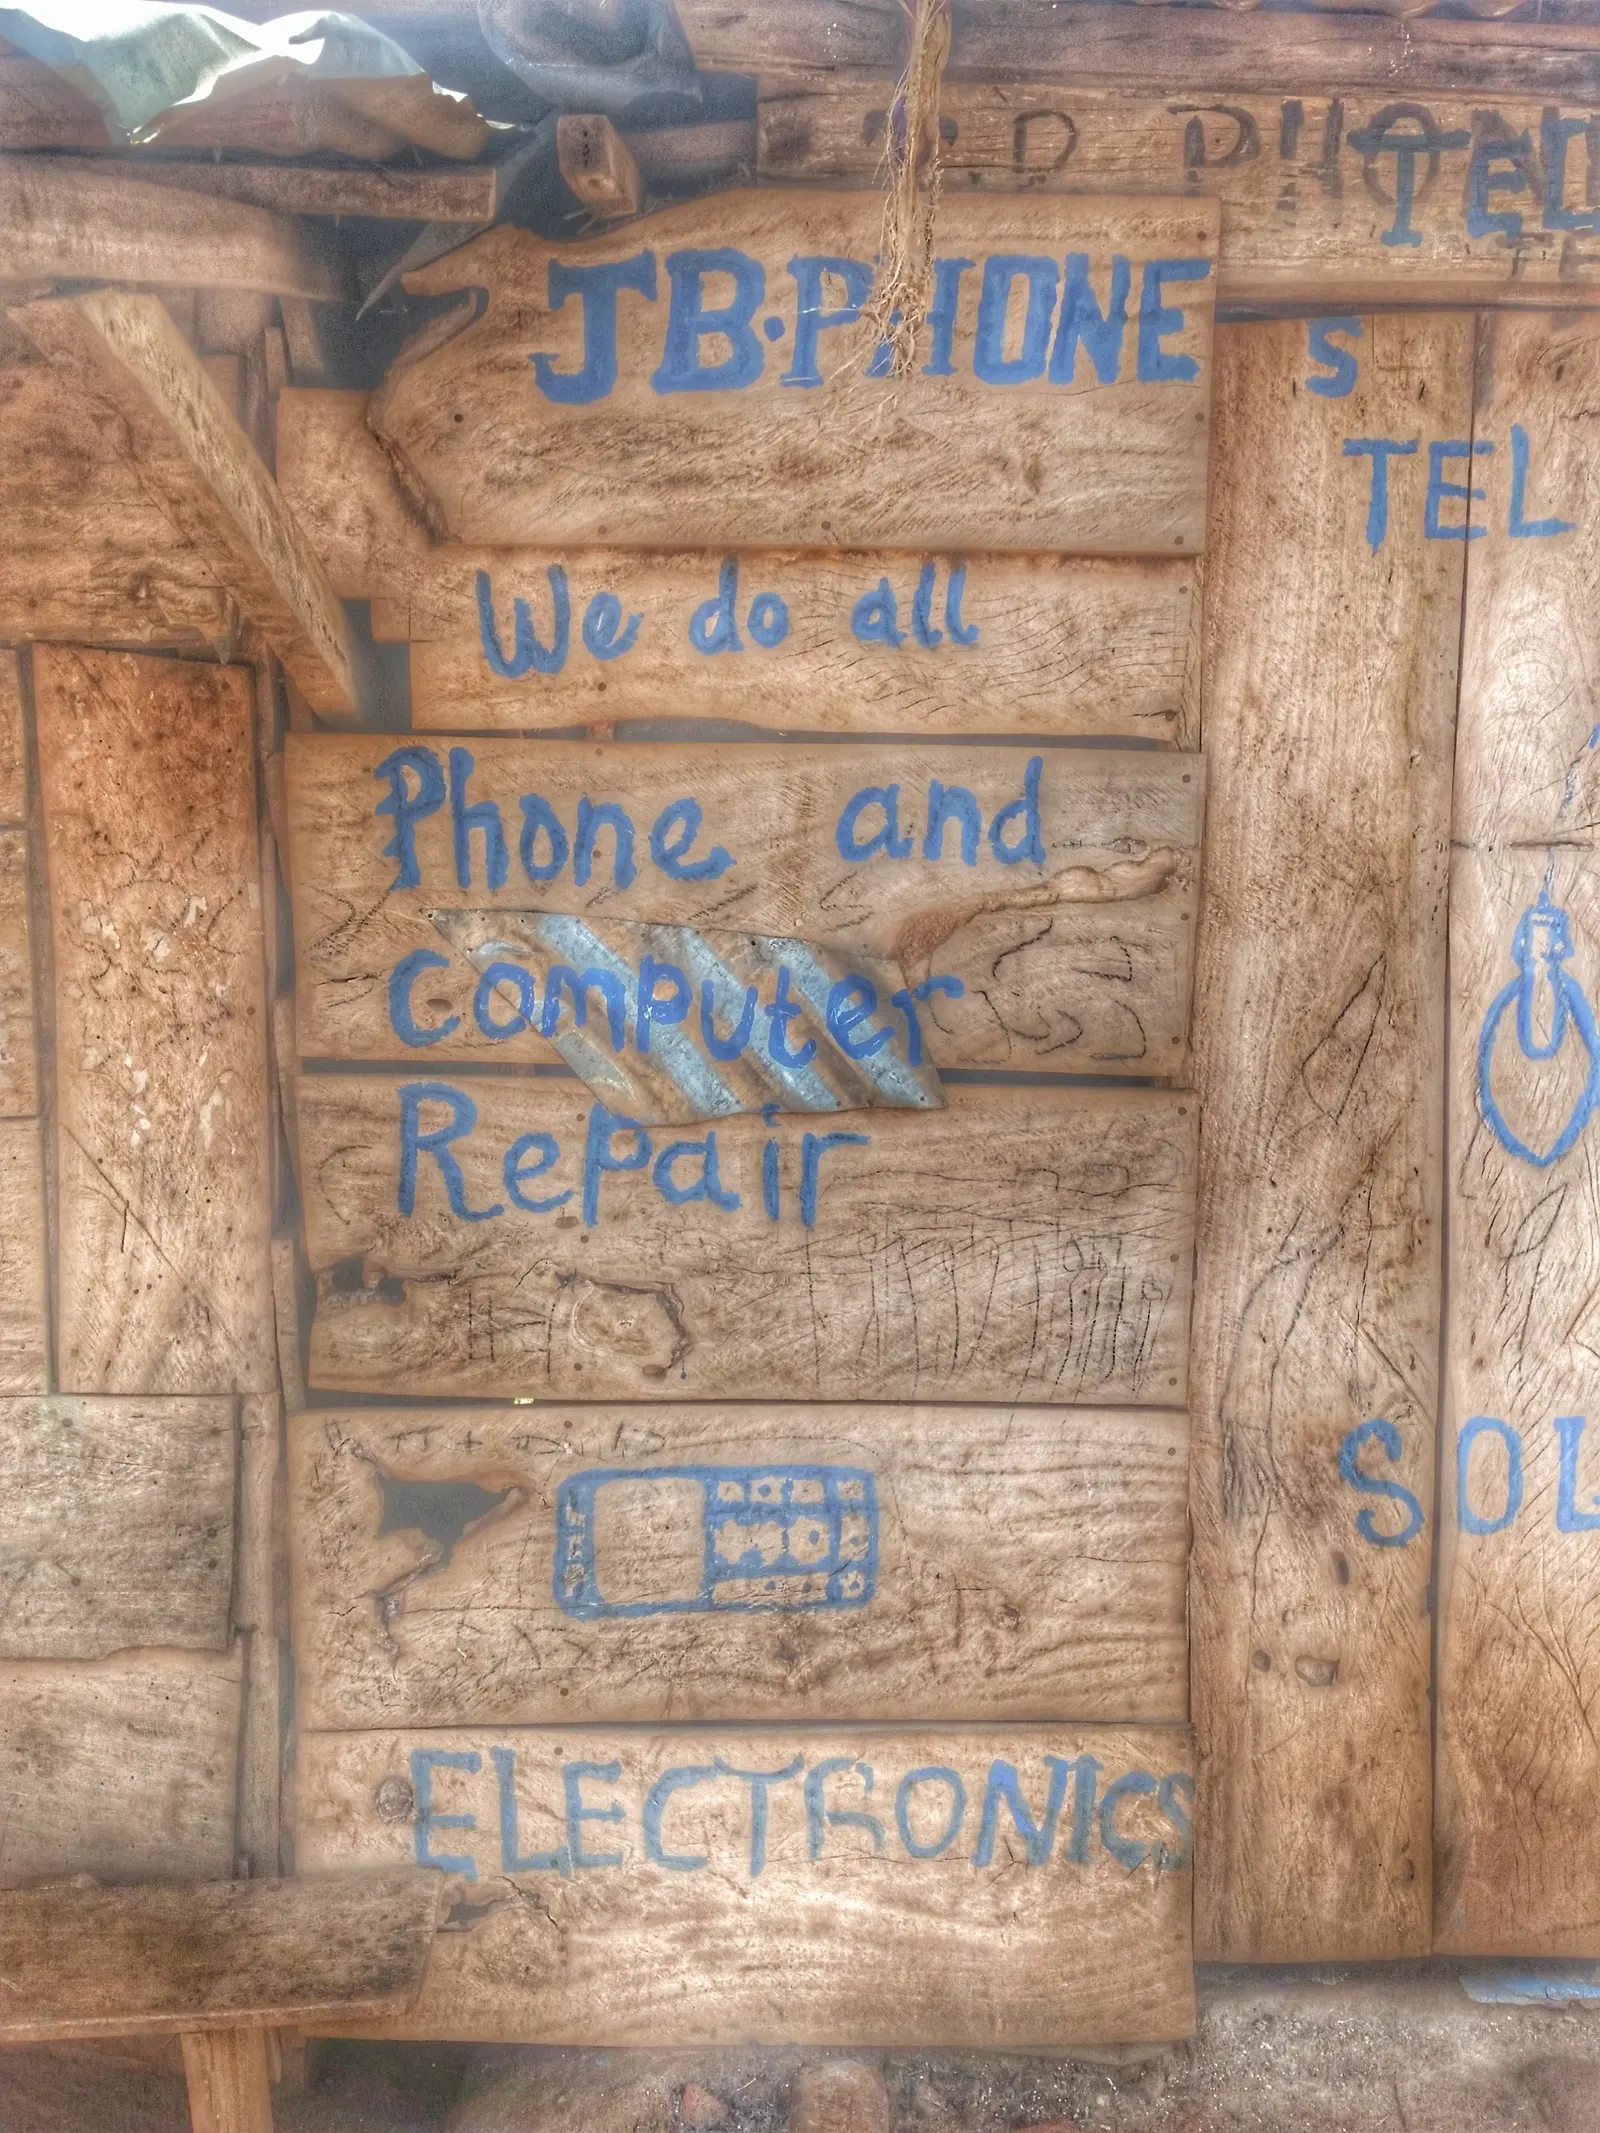 TEL
JB.PHONE
S
TEL
We do all
Phone and
Computer
Repair
SOL
ELECTRONICS